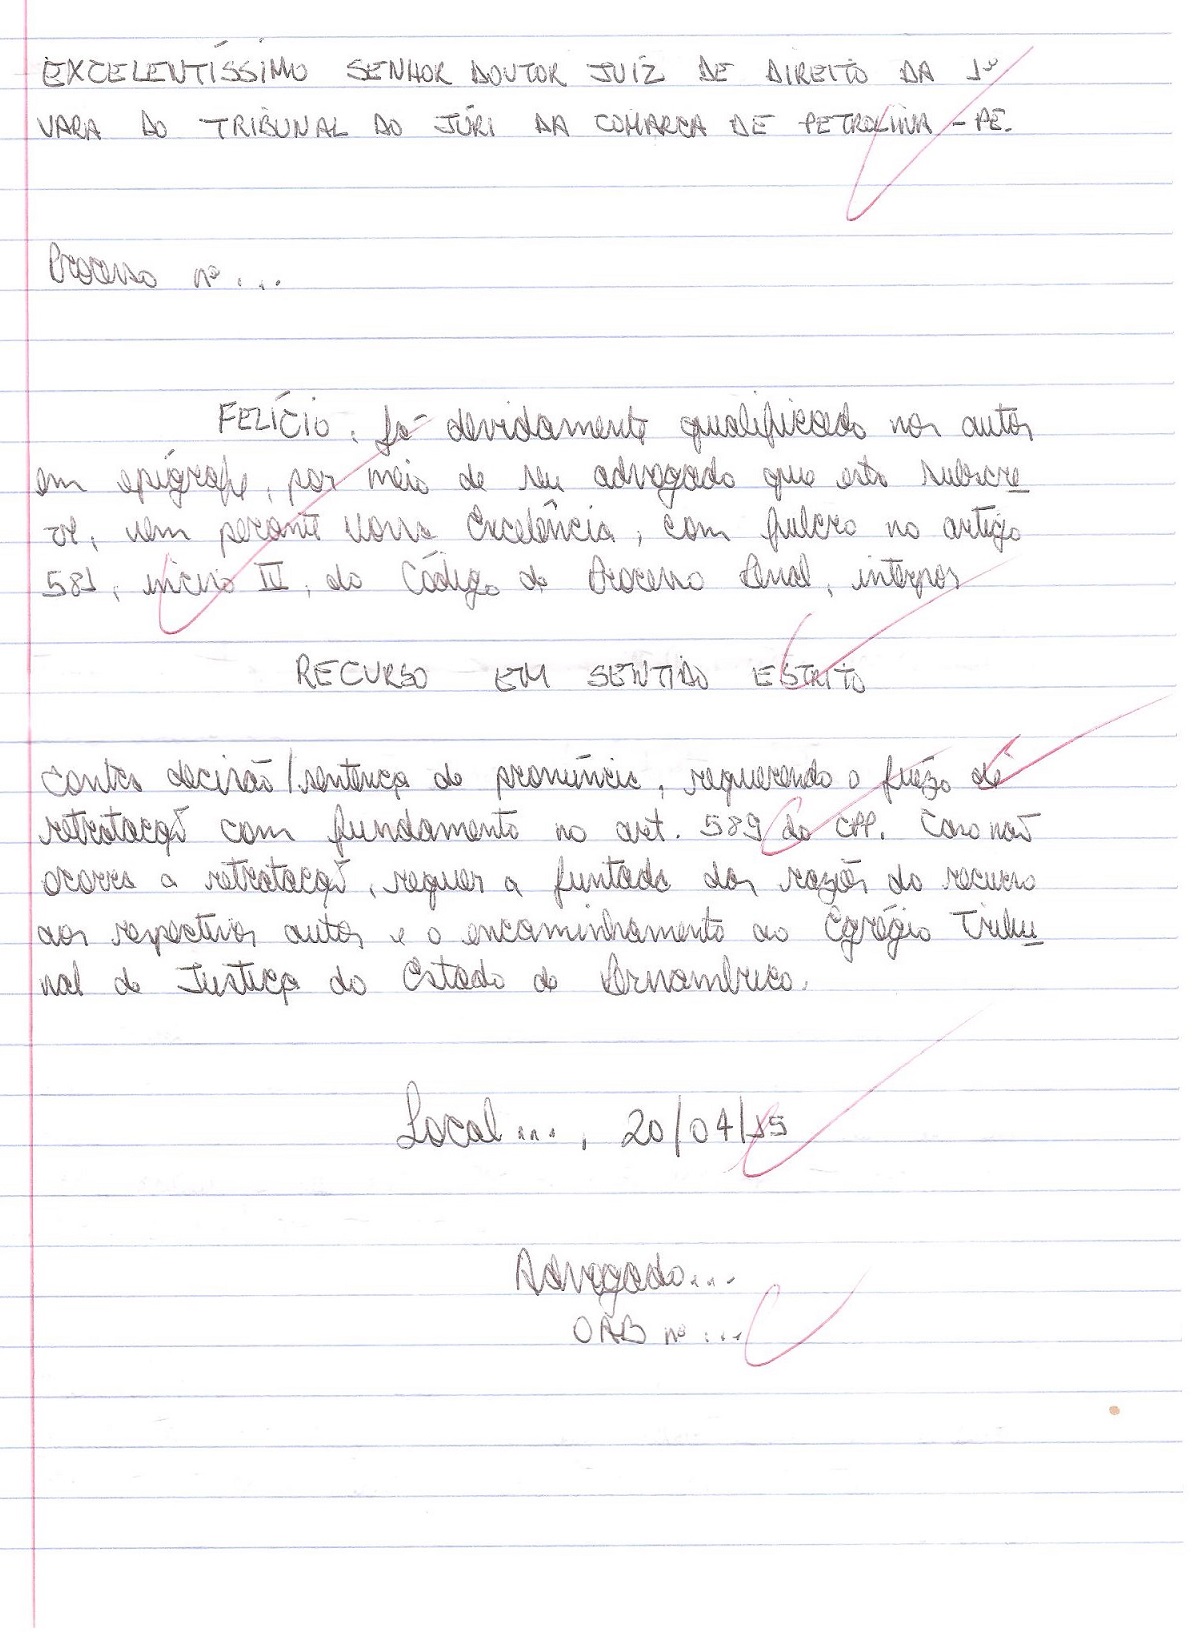 EXCELENTÍSSIMO SENHOR DOUTOR JUÍZ DE DIREITO DA 1ª
VARA DO TRIBUNAL DO JÚRI DA COMARCA DE PETROLINA - PE.
Processo nº...
FELÍCIO, já devidamente qualificado nos autos
em epígrafe, por meio de seu advogado que esta subscre
ve, vem perante Vossa Excelência, com fulcro no artigo
581, inciso IV, do Código de Processo Penal, interpor
RECURSO EM SENTIDO ESTRITO
contra decisão/sentença de pronúncia, requerendo o juízo de
retratação com fundamento no art. 589 do CPP. Caso não
ocorra a retratação, requer a juntada das razões do recurso
aos respectivos autos e o encaminhamento ao Egrégio Tribu
nal de Justiça do Estado de Pernambuco.
Local..., 20/04/15
Advogado...
OAB nº...